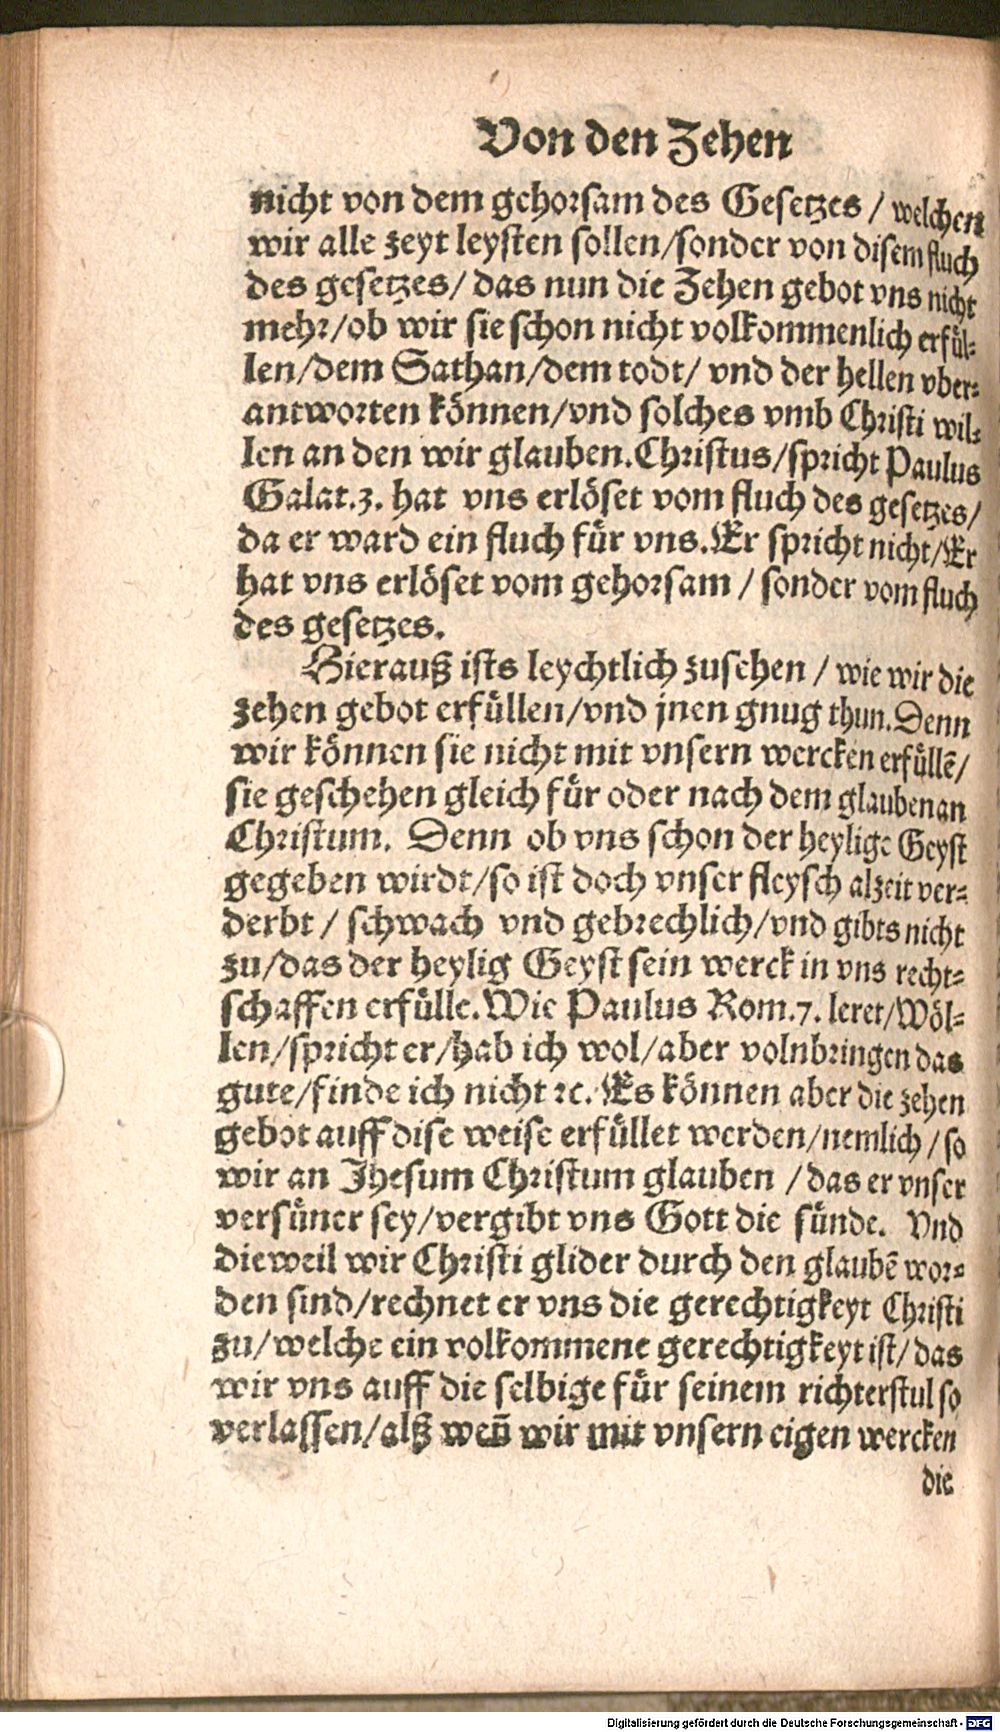 Von den Zehen
nicht von dem gehorsam des Gesetzes / welchen
wir alle zeyt leysten sollen/sonder von disem fluch
des gesetzes/ das nun die Zehen gebot vns nicht
mehr/ob wir sie schon nicht volkommenlich erfül-
len/dem Sathan/dem todt/ vnd der hellen vber-
antworten können/vnd solches vmb Christi wil-
len an den wir glauben.Christus/spricht Paulus
Galat.3. hat vns erlöset vom fluch des gesetzes/
da er ward ein fluch für vns.Er spricht nicht/Er
hat vns erlöset vom gehorsam / sonder vom fluch
des gesetzes.
Hierauß ists leychtlich zusehen / wie wir die
zehen gebot erfüllen/vnd jnen gnug thun.Denn
wir können sie nicht mit vnsern wercken erfüllẽ/
sie geschehen gleich für oder nach dem glauben an
Christum. Denn ob vns schon der heylige Geyst
gegeben wirdt/so ist doch vnser fleysch alzeit ver-
derbt / schwach vnd gebrechlich/vnd gibts nicht
zu/das der heylig Geyst sein werck in vns recht-
schaffen erfülle.Wie Paulus Rom.7. leret/Wöl-
len/spricht er/hab ich wol/aber volnbringen das
gute/finde ich nicht ꝛc. Es können aber die zehen
gebot auff dise weise erfüllet werden/nemlich / so
wir an Jhesum Christum glauben / das er vnser
versüner sey/vergibt vns Gott die sünde. Vnd
dieweil wir Christi glider durch den glaubẽ wor-
den sind/rechnet er vns die gerechtigkeyt Christi
zu/welche ein volkommene gerechtigkeyt ist/das
wir vns auff die selbige für seinem richterstul so
verlassen/alß weñ wir mit vnsern eigen wercken
die
Digitalisierung gefördert durch die Deutsche Forschungsgemeinschaft - DFG